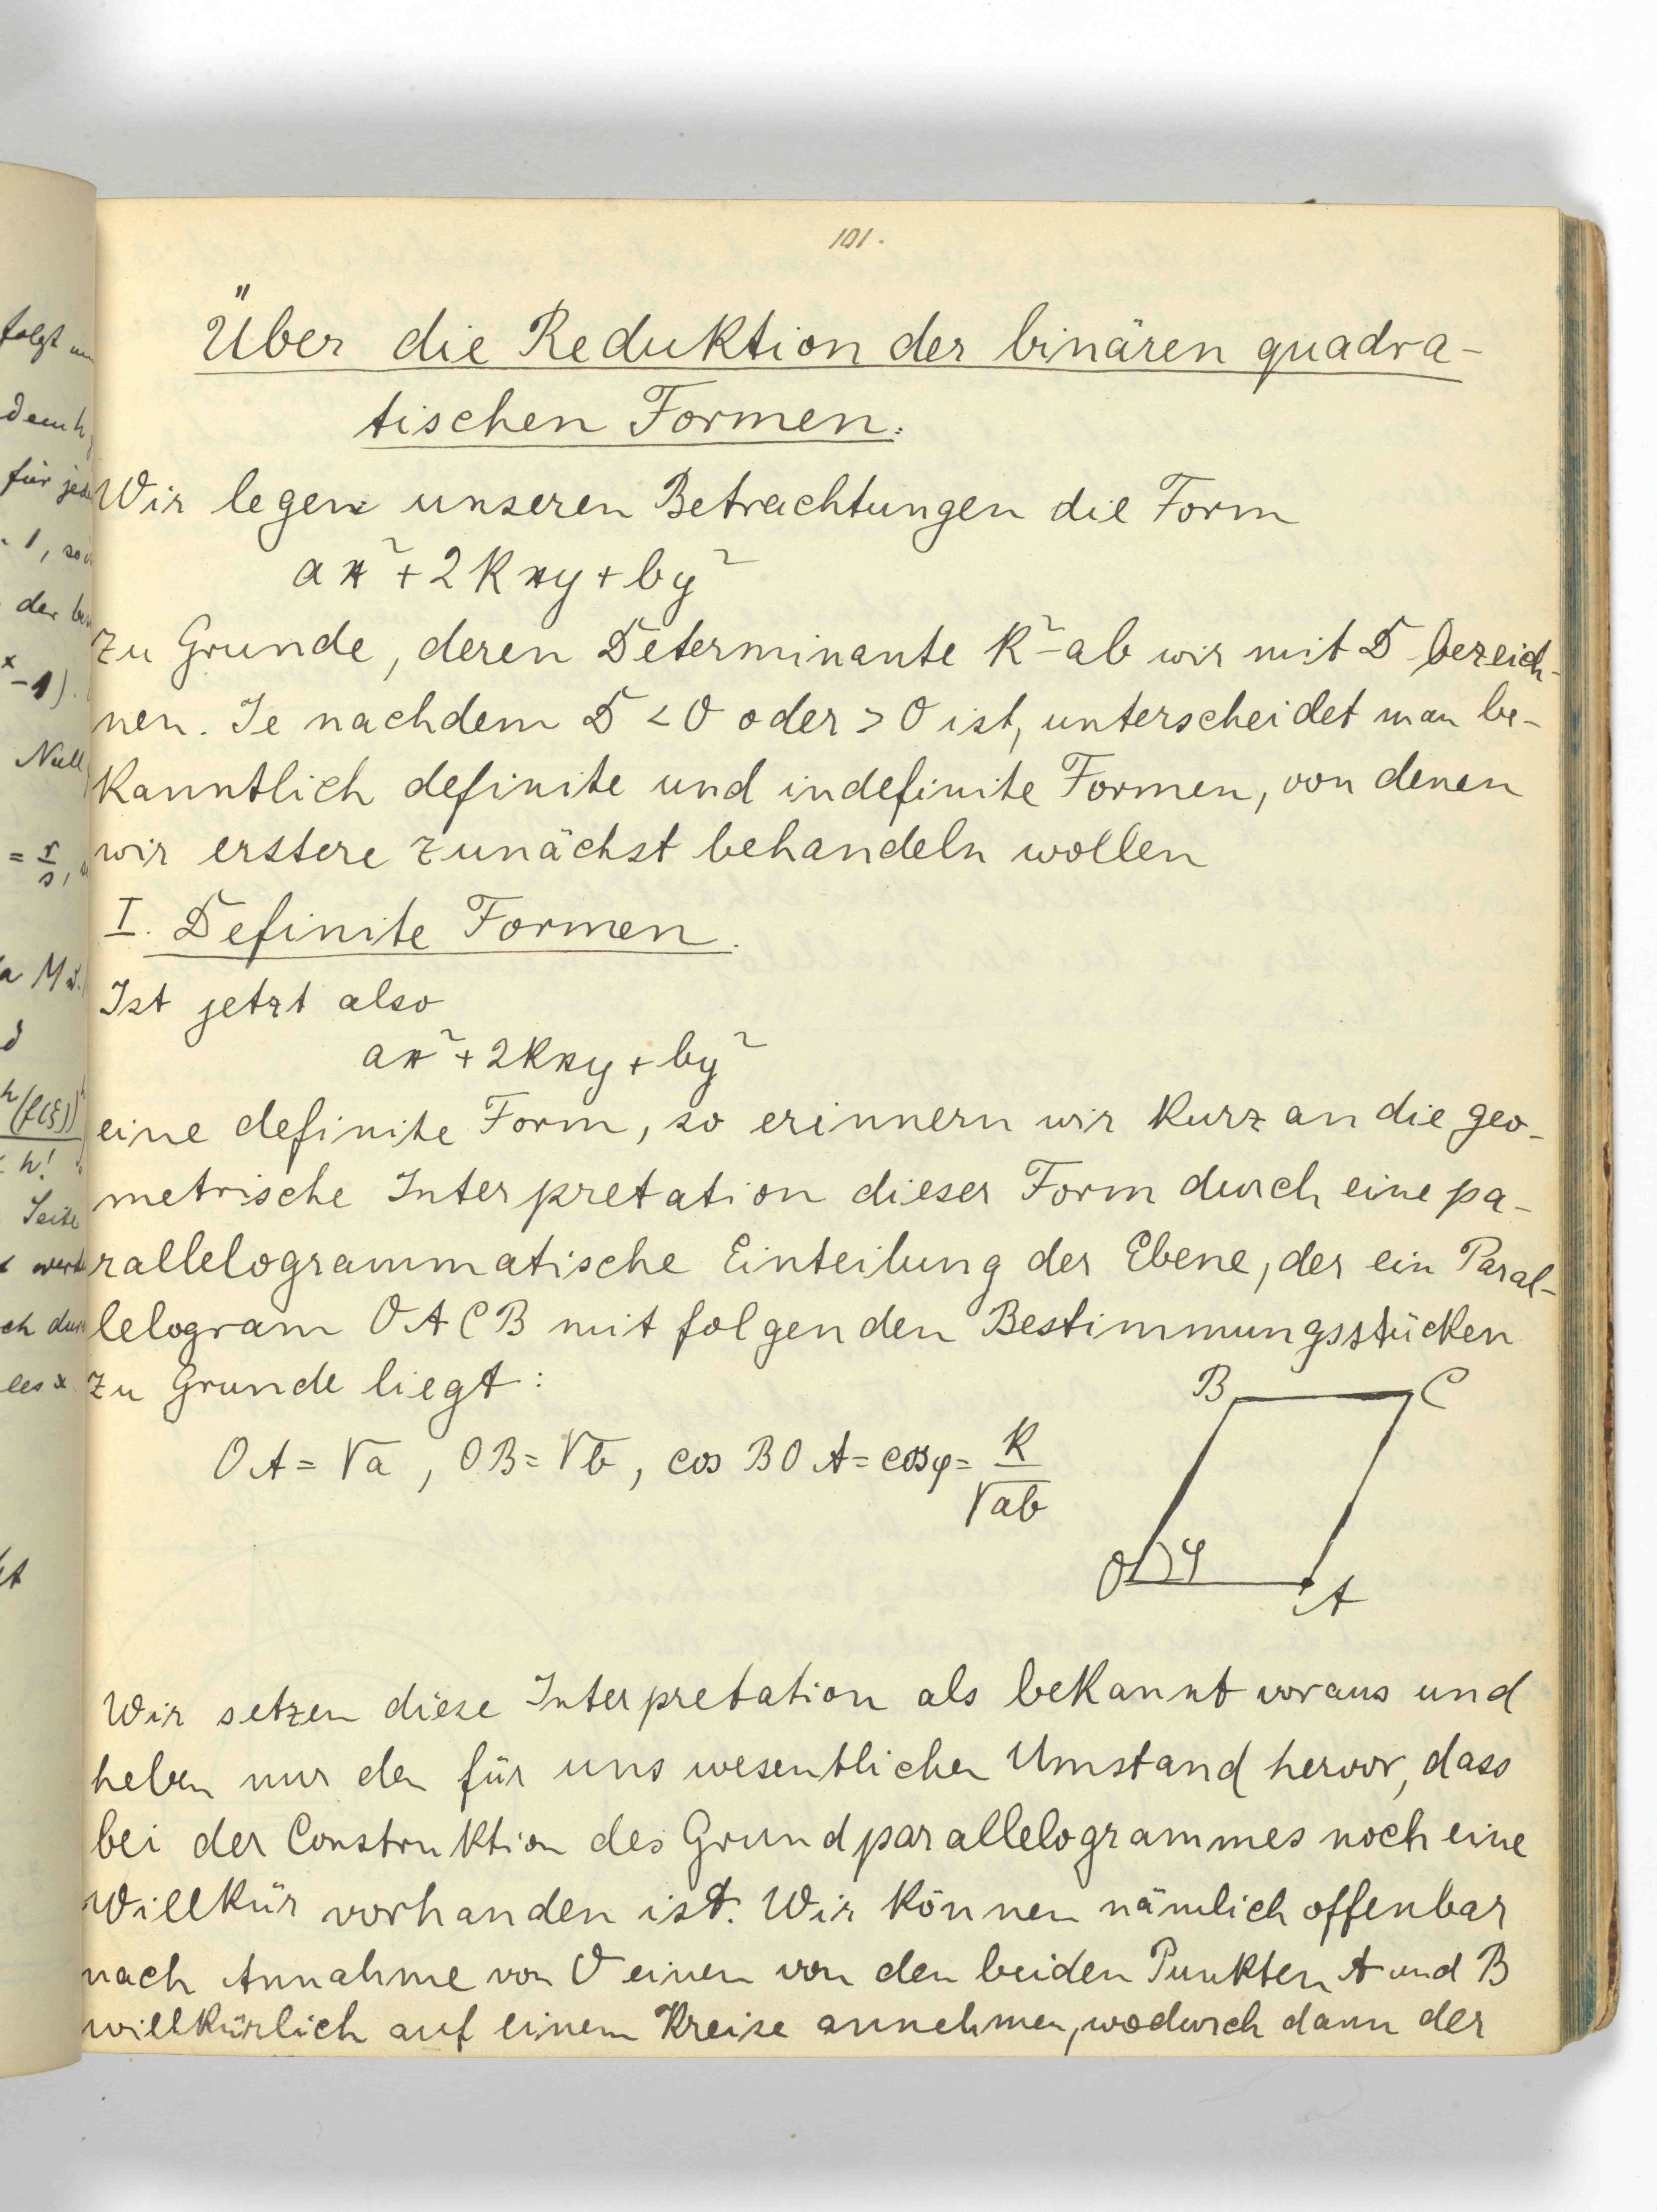 101.
Über die Reduktion der binären quadra-
tischen Formen.
Wir legen unseren Betrachtungen die Form
ax² + 2kxy + by²
zu Grunde, deren Determinante k²-ab wir mit D bezeich-
nen. Je nachdem D < 0 oder > 0 ist, unterscheidet man be-
kanntlich definite und indefinite Formen, von denen
wir erstere zunächst behandeln wollen
I. Definite Formen.
Ist jetzt also
ax² + 2kxy + by²
eine definite Form, so erinnern wir kurz an die geo-
metrische Interpretation dieser Form durch eine pa-
rallelogrammatische Einteilung der Ebene, der ein Paral-
lelogram OACB mit folgenden Bestimmungsstücken
zu Grunde liegt:
B C
OA = √a, OB = √b, cos BOA = cos φ = k/√ab
O φ A
Wir setzen diese Interpretation als bekannt voraus und
heben nur den für uns wesentlichen Umstand hervor, dass
bei der Construktion des Grundparallelogrammes noch eine
Willkür vorhanden ist. Wir können nämlich offenbar
nach Annahme von O einen von den beiden Punkten A und B
willkürlich auf einem Kreise annehmen, wodurch dann der
folgt
für
der
Null
= r/s,
h!
Seite